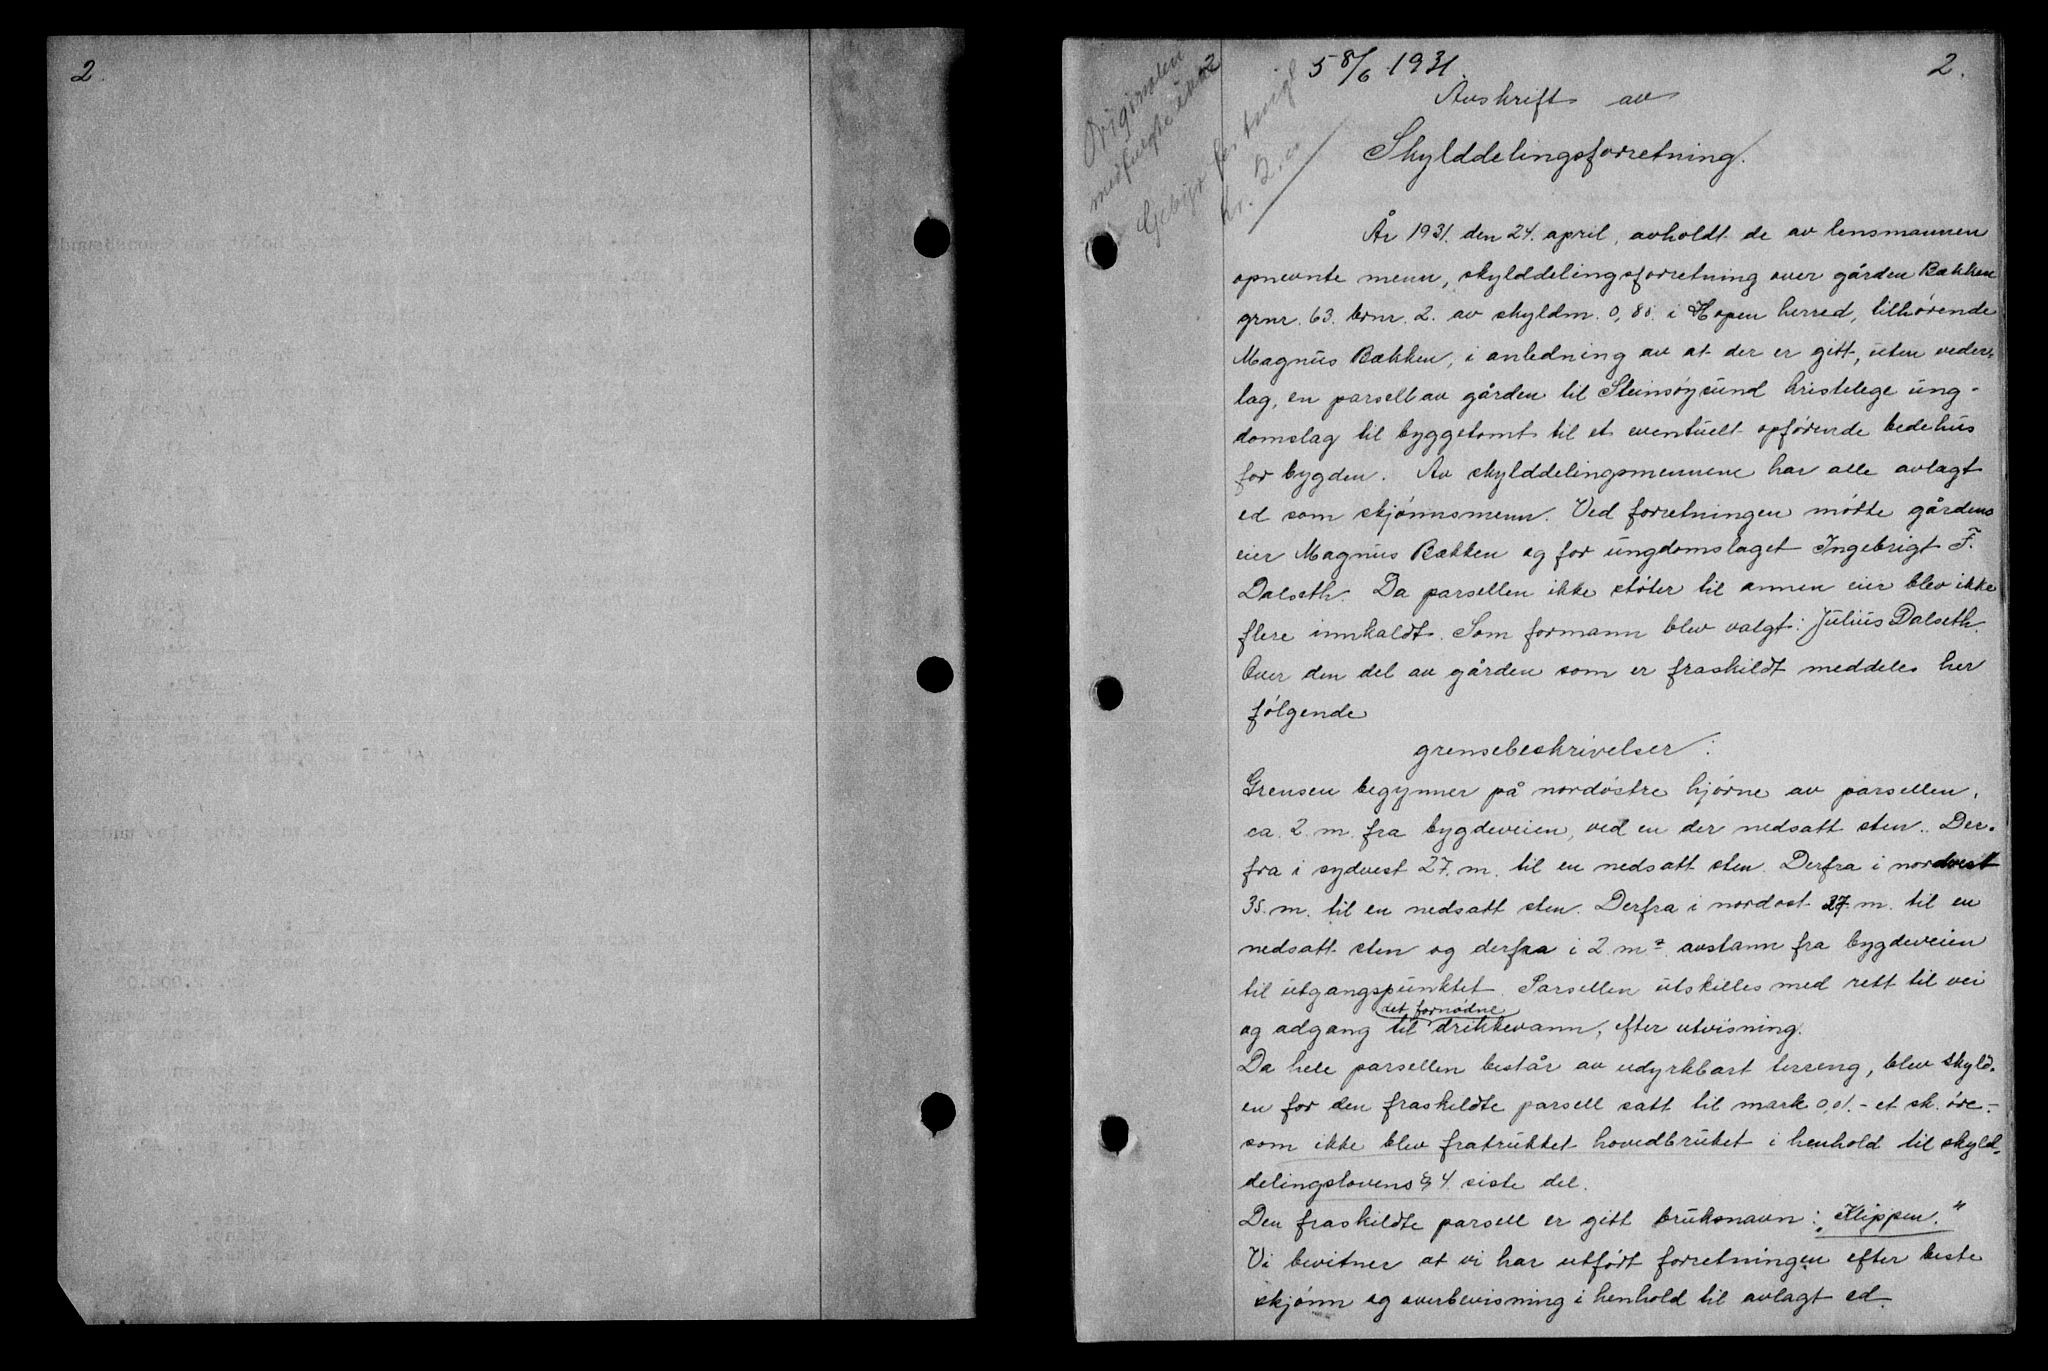 2.
5 8/6 1931.
2.
Originalen
Gebyr for tingl.
kr. 2.
Avskrift av
Skylddelingsforretning.
År 1931. den 24. april, avholdt de av lensmannen
opnevnte menn, skylddelingsforretning over gården Bækken
grnr. 63. brnr. 2. av skyldm. 0,80. i Hopen herred, tilhørende
Magnus Bækken, i anledning av at der er gitt, uten veder-
lag, en parsell av gården til Steinsøysund kristelege ung-
domslag til byggetomt til et eventuelt opførende bedehus
for bygden. Av skylddelingsmennene har alle avlagt
ed som skjønnsmenn. Ved forretningen møtte gårdens
eier Magnus Bækken og for ungdomslaget Ingebrigt F.
Dalseth. Da parsellen ikke støter til annen eier blev ikke
flere innkaldt. Som formann blev valgt: Julius Dalseth.
Over den del av gården som er fraskildt meddeles her
følgende
grensebeskrivelser:
Grensen begynner på nordøstre hjørne av parsellen,
ca. 2 m. fra bygdeveien, ved en der nedsatt sten. Der-
fra i sydvest 27. m. til en nedsatt sten. Derfra i nordvest
35. m. til en nedsatt sten. Derfra i nordost 27 m. til en
nedsatt sten og derfra i 2 m² avstann fra bygdeveien
til utgangspunktet. Parsellen utskilles med rett til vei
det fornødne
og adgang til drikkevann, efter utvisning.
Da hele parsellen består av udyrkbart terreng, blev skyld-
en for den fraskildte parsell satt til mark 0,01. - et sk. øre. -
som ikke blev fratrukket hovedbruket i henhold til skyld-
delingslovens § 4. siste del.
Den fraskildte parsell er gitt bruksnavn: „Klippen."
Vi bevitner at vi har utført forretningen efter beste
skjønn og overbevisning i henhold til avlagt ed.